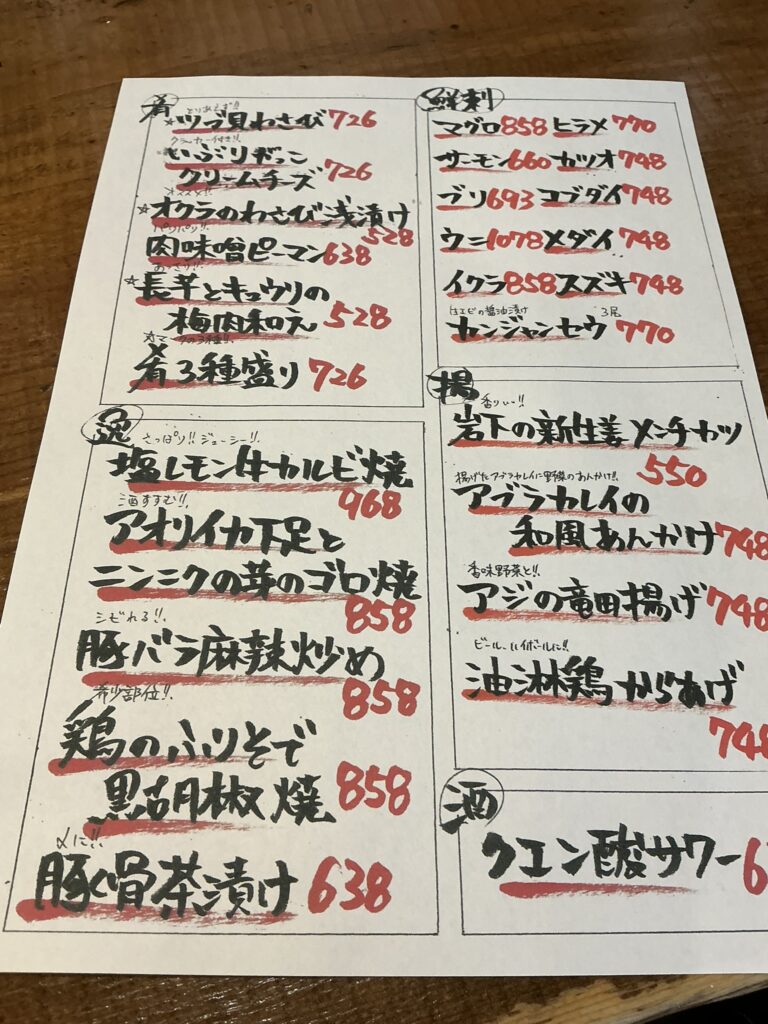 肴
とりあえず!!
☆ツブ貝わさび 726
クラッカー付き!!
いぶりがっこ
クリームチーズ 726
オススメ!!
☆オクラのわさび浅漬け
528
パリパリ!!
肉味噌ピーマン 638
あっさり!!
☆長芋とキュウリの
梅肉和え 528
肴3種盛り 726
逸
さっぱり!!ジューシー!!
塩レモン牛カルビ焼
968
酒すすむ!!
アオリイカ下足と
ニンニクの芽のゴロ焼
858
シビれる!!
豚バラ麻辣炒め
858
希少部位!!
鶏のふりそで
黒胡椒焼 858
〆に!!
豚骨茶漬け 638
鮮刺
マグロ858 ヒラメ770
サーモン660 カツオ748
ブリ693 コブダイ748
ウニ1078 メダイ748
イクラ858 スズキ748
甘エビの醤油漬け 3尾
カンジャンセウ 770
揚
香りぃー!!
岩下の新生姜メンチカツ
550
揚げたアブラカレイに野菜のあんかけ!!
アブラカレイの
和風あんかけ 748
香味野菜と!!
アジの竜田揚げ 748
ビール、ハイボールに!!
油淋鶏からあげ
748
酒
クエン酸サワー